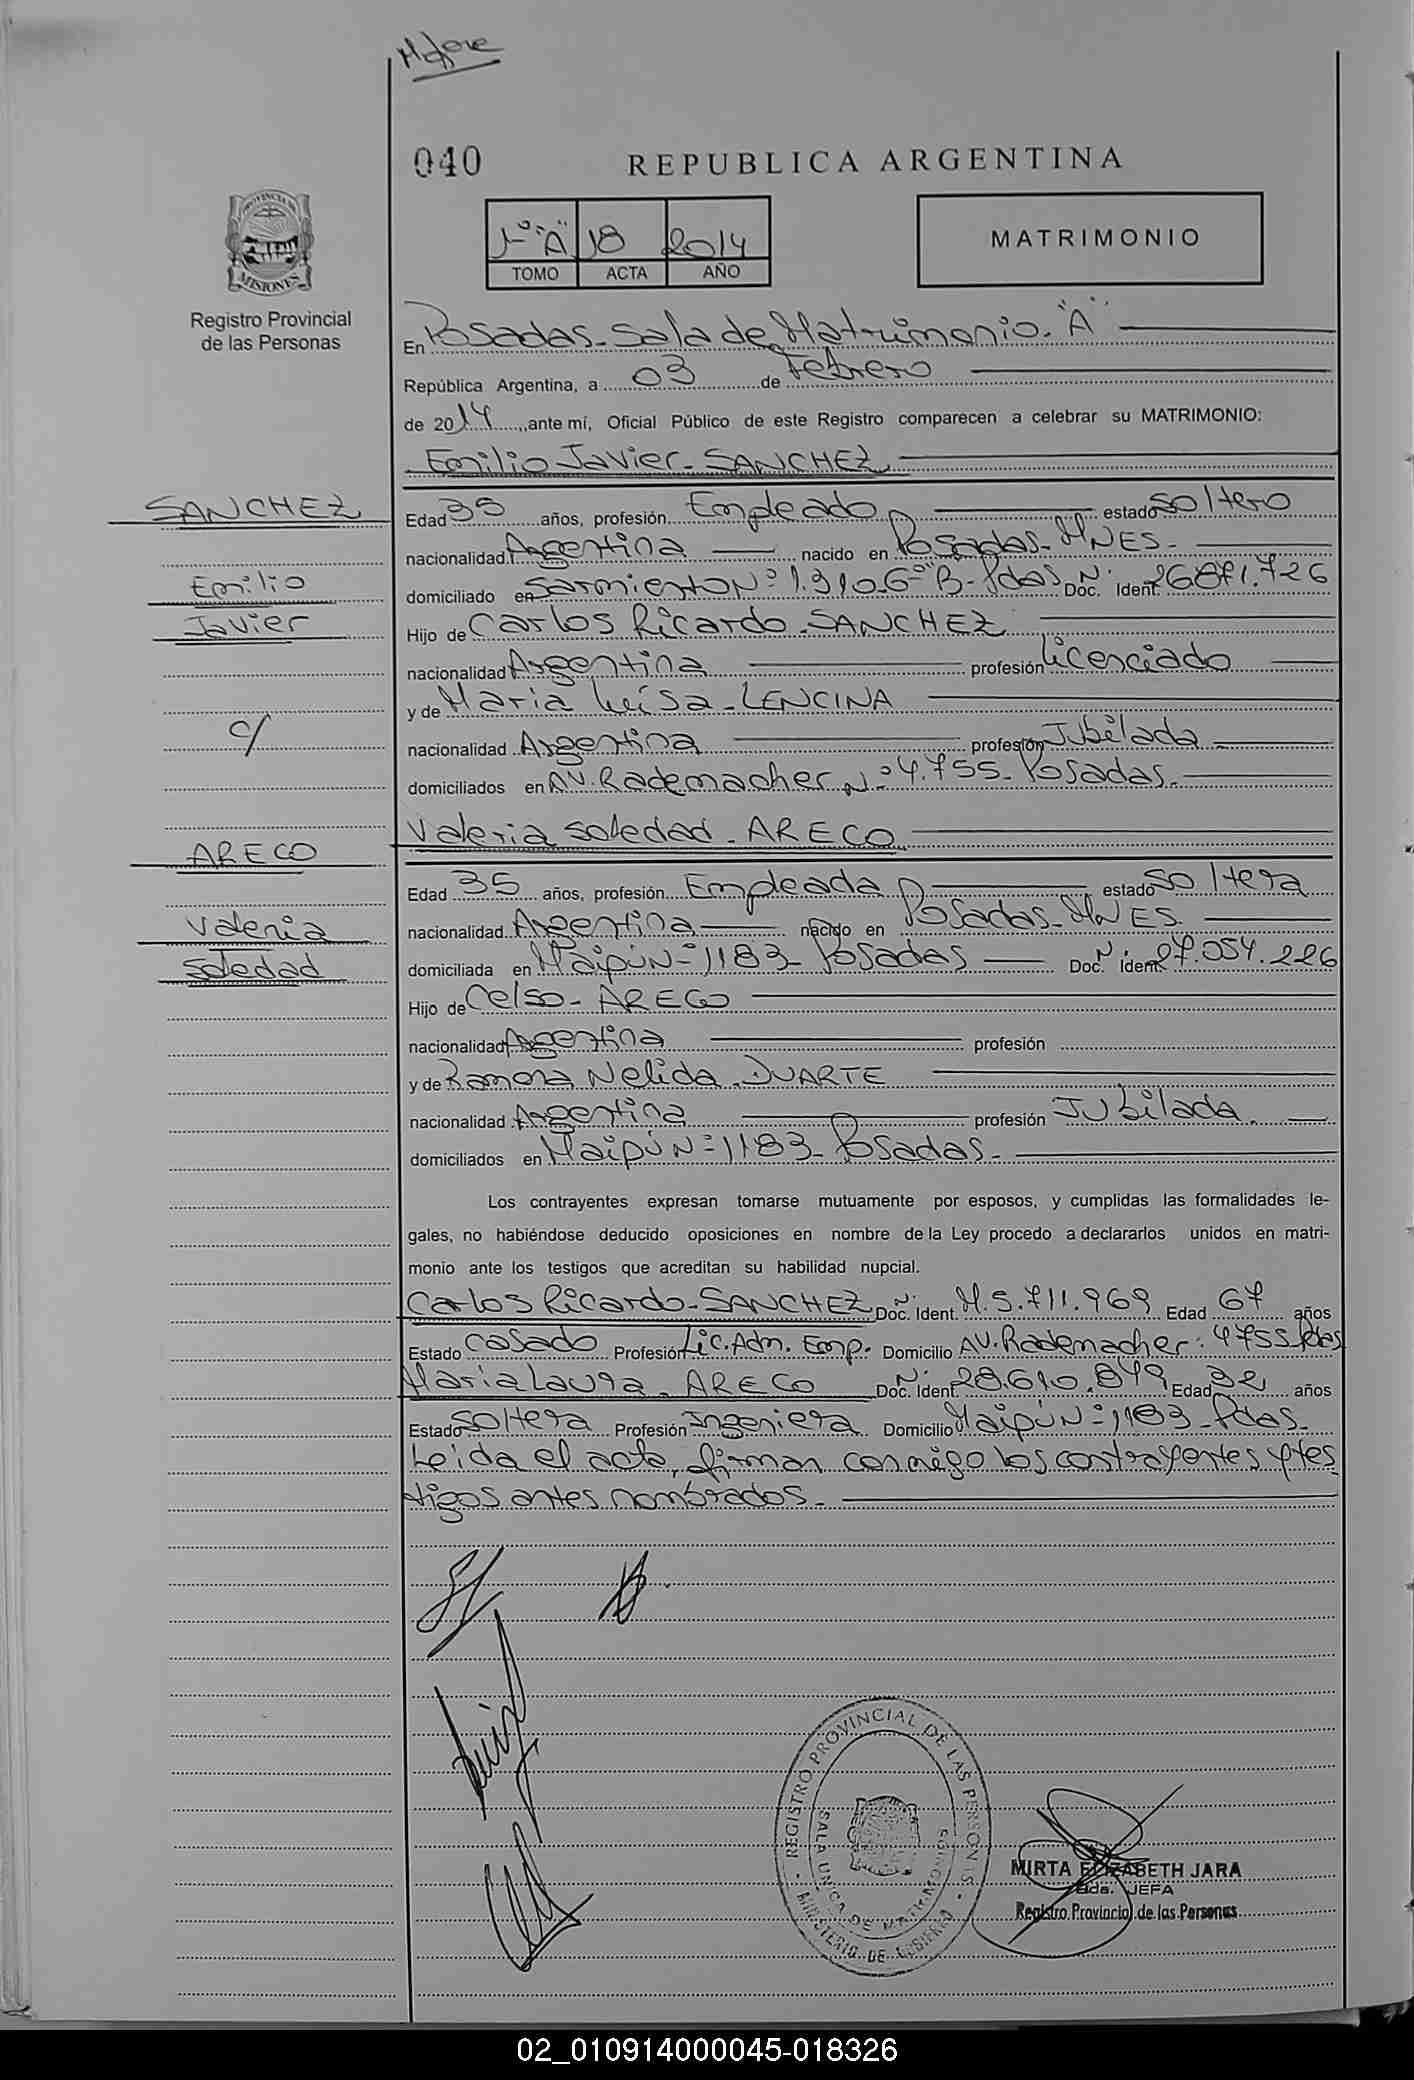 040
REPUBLICA ARGENTINA
PROVINCIA DE
MISIONES
Registro Provincial
de las Personas
1º "A" 18 2014
TOMO ACTA AÑO
MATRIMONIO
En Posadas-Sala de Matrimonio-"A"
República Argentina, a 03 de Febrero
de 2014, ante mí, Oficial Público de este Registro comparecen a celebrar su MATRIMONIO:
Emilio Javier-SANCHEZ
SANCHEZ
Emilio
Javier
c/
ARECO
Valeria
Soledad
Edad 35 años, profesión Empleado estado soltero
nacionalidad Argentina nacido en Posadas-MNES-
domiciliado en Sarmiento Nº 1.310-6º "B"-Pdas Doc. Nº Ident. 26.871.726
Hijo de Carlos Ricardo-SANCHEZ
nacionalidad Argentina profesión Licenciado
y de Maria Luisa-LENCINA
nacionalidad Argentina profesión Jubilada
domiciliados en AV. Rademacher Nº 4.755-Posadas-
Valeria Soledad-ARECO
Edad 35 años, profesión Empleada estado soltera
nacionalidad Argentina nacido en Posadas-MNES-
domiciliada en Maipú Nº 1183-Posadas Doc. Nº Ident. 27.054.226
Hijo de Celso-ARECO
nacionalidad Argentina profesión
y de Ramona Nelida-DUARTE
nacionalidad Argentina profesión Jubilada.
domiciliados en Maipú Nº 1183-Posadas-
Los contrayentes expresan tomarse mutuamente por esposos, y cumplidas las formalidades le-
gales, no habiéndose deducido oposiciones en nombre de la Ley procedo a declararlos unidos en matri-
monio ante los testigos que acreditan su habilidad nupcial.
Carlos Ricardo-SANCHEZ Doc. Nº Ident. M.5.711.969 Edad 67 años
Estado casado Profesión Lic. Adm. Emp. Domicilio AV. Rademacher: 4755 Pdas
Maria Laura-ARECO Doc. Nº Ident. 28.610.849 Edad 32 años
Estado Soltera Profesión Ingeniera Domicilio Maipú Nº 1183-Pdas-
Leida el acta, firman conmigo los contrayentes y tes
tigos antes nombrados-
REGISTRO PROVINCIAL DE LAS PERSONAS
SALA UNICA DE MATRIMONIOS
MINISTERIO DE GOBIERNO
MIRTA ELIZABETH JARA
JEFA
Registro Provincial de las Personas
02_010914000045-018326